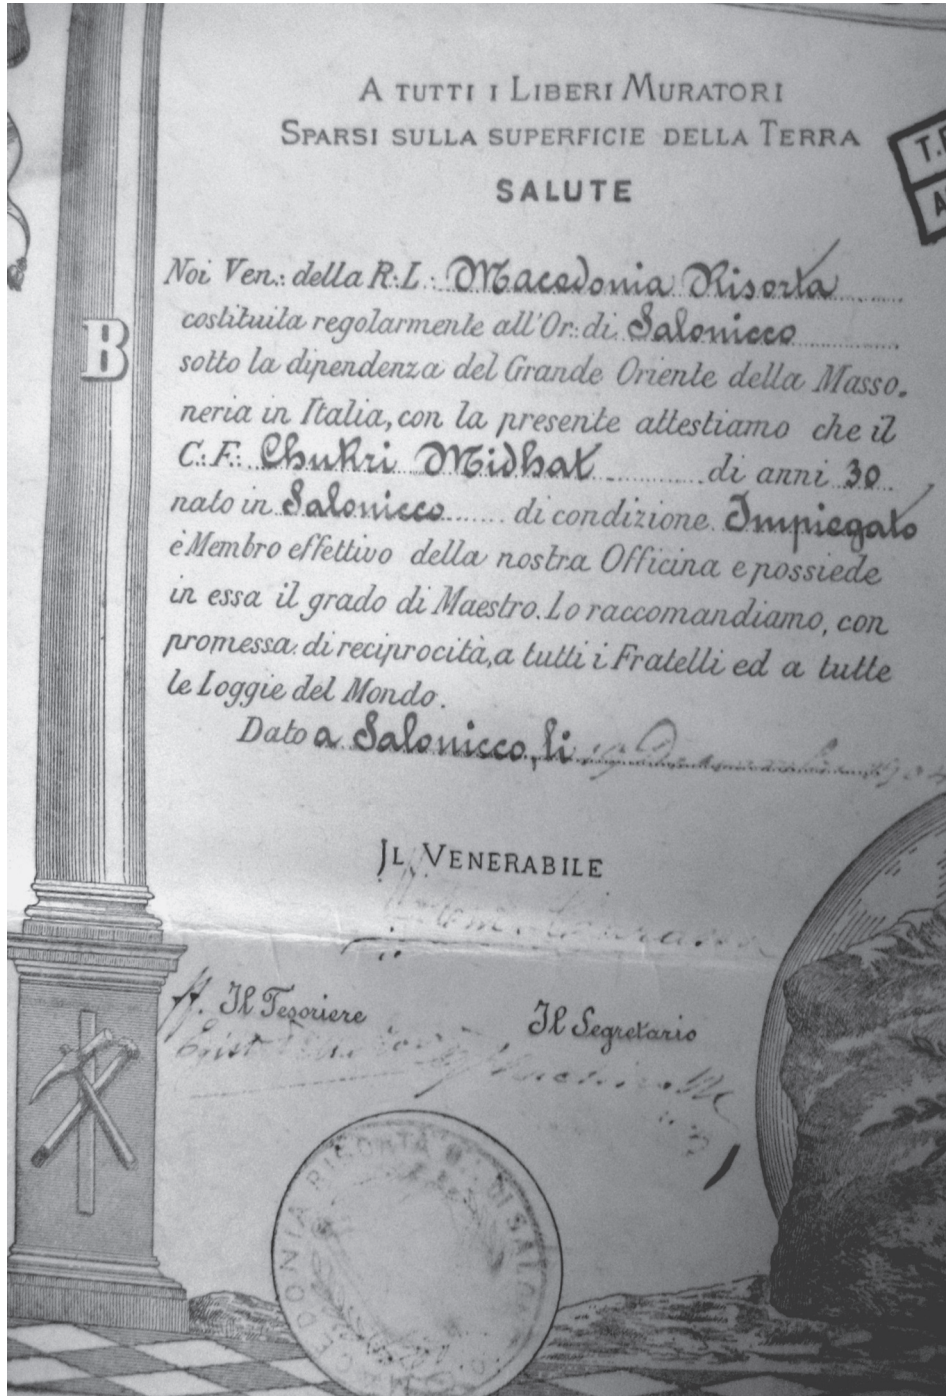 A TUTTI I LIBERI MURATORI
SPARSI SULLA SUPERFICIE DELLA TERRA
SALUTE
T.
A
Noi Ven.: della R:L.: Macedonia Risorta
costituita regolarmente all'Or: di Salonicco
B
sotto la dipendenza del Grande Oriente della Masso.
neria in Italia, con la presente attestiamo che il
C:F: Chukri Midhat di anni 30
nato in Salonicco di condizione Impiegato
è Membro effettivo della nostra Officina e possiede
in essa il grado di Maestro. Lo raccomandiamo, con
promessa di reciprocità, a tutti i Fratelli ed a tutte
le Loggie del Mondo.
Dato a Salonicco, li 19
IL VENERABILE
ff. Il Tesoriere Il Segretario
MACEDONIA RISORTA DI SALONICCO